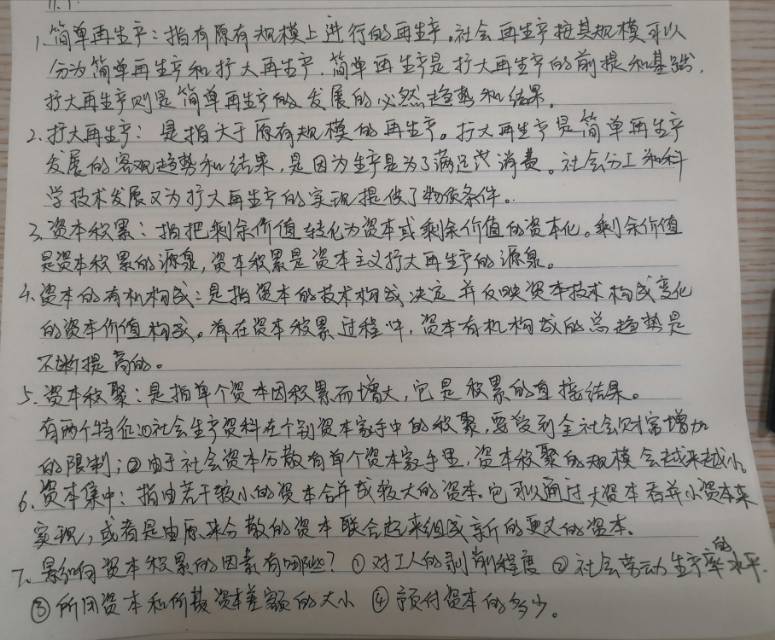 1、简单再生产：指有原有规模上进行的再生产。社会再生产按其规模可以
分为简单再生产和扩大再生产。简单再生产是扩大再生产的前提和基础，
扩大再生产则是简单再生产的发展的必然趋势和结果。
2、扩大再生产：是指大于原有规模的再生产。扩大再生产是简单再生产
发展的客观趋势和结果，是因为生产是为了满足消费。社会分工和科
学技术发展又为扩大再生产的实现提供了物质条件。
3、资本积累：指把剩余价值转化为资本或剩余价值的资本化。剩余价值
是资本积累的源泉，资本积累是资本主义扩大再生产的源泉。
4、资本的有机构成：是指资本的技术构成决定并反映资本技术构成变化
的资本价值构成。有在资本积累过程中，资本有机构成的总趋势是
不断提高的。
5、资本积聚：是指单个资本因积累而增大，它是积累的直接结果。
有两个特征①社会生产资料在个别资本家手中的积聚，要受到全社会财富增加
的限制；②由于社会资本分散有单个资本家手里，资本积聚的规模会越来越小。
6、资本集中：指由若干较小的资本合并成较大的资本。它可以通过大资本吞并小资本来
实现，或者是由原来分散的资本联合起来组成新的更大的资本。
7、影响资本积累的因素有哪些？①对工人的剥削程度 ②社会劳动生产率的水平.
③所用资本和所费资本差额的大小 ④预付资本的多少。